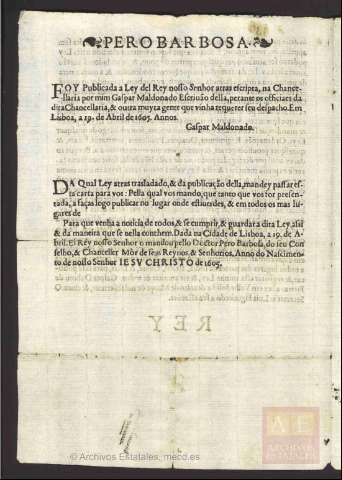 PERO BARBOSA.
FOY Publicada a Ley del Rey nosso Senhor atras escripta, na Chancel
laria por mim Gaspar Maldonado Escriuão della, perante os officiaes da
dita Chancellaria, & outra muyta gente que vinha requerer seu despacho. Em
Lisboa, a 19. de Abril de 1605. Annos.
Gaspar Maldonado.
DA Qual Ley atras trasladado, & da publicação della, mandey passar es
ta carta para vos: Pella qual vos mando, que tanto que vos for presen-
tada, a façais logo publicar no lugar onde estiuerdes, & em todos os mas lu-
gares de
Para que venha a noticia de todos, & se cumprir, & guardar a dita Ley, assi
& da maneira que se nella conthem. Dada na Cidade de Lisboa, a 19. de A-
bril. El Rey nosso Senhor o mandou pello Doctor Pero Barbosa, do seu Con
selho, & Chanceller Mòr de seus Reynos, & Senhorios, Anno do Nascimen-
to de nosso Senhor IESV CHRISTO de 1605.
REY
© Archivos Estatales, mecd.es
AE
ARCHIVOS
ESTATALES